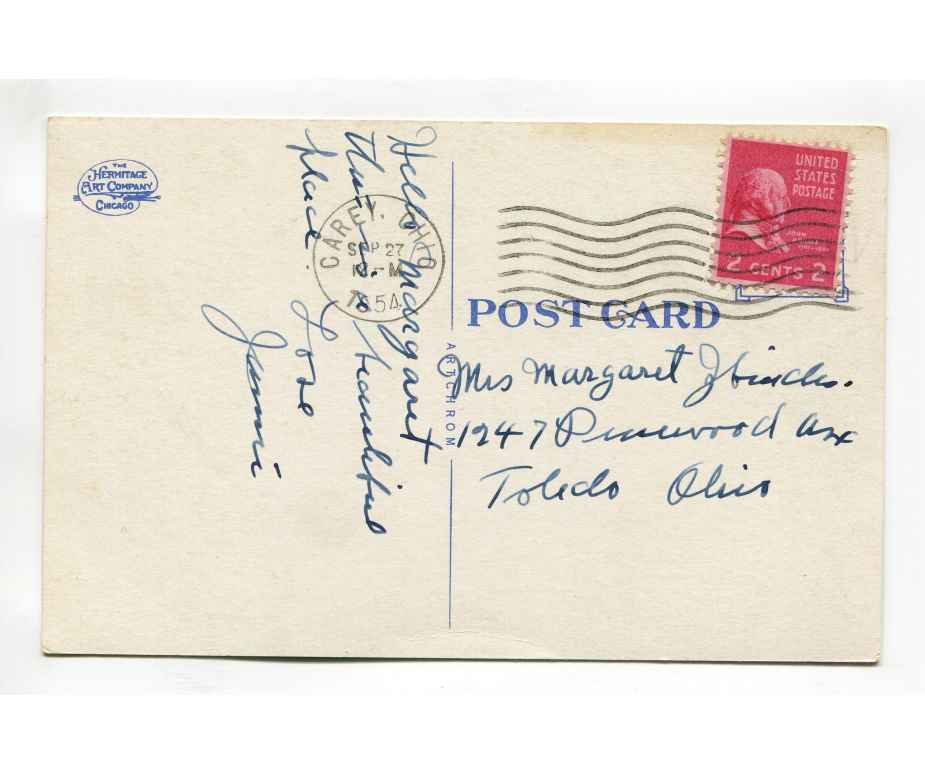 THE
HERMITAGE
ART COMPANY
CHICAGO
Hello Margaret
This is a beautiful
place.
Love
CAREY, OHIO
SEP 27
PM
1954
UNITED
STATES
POSTAGE
JOHN
2 CENTS 2
POST CARD
ARTCHROM
Mrs Margaret
1247 Pinewood Ave
Toledo Ohio